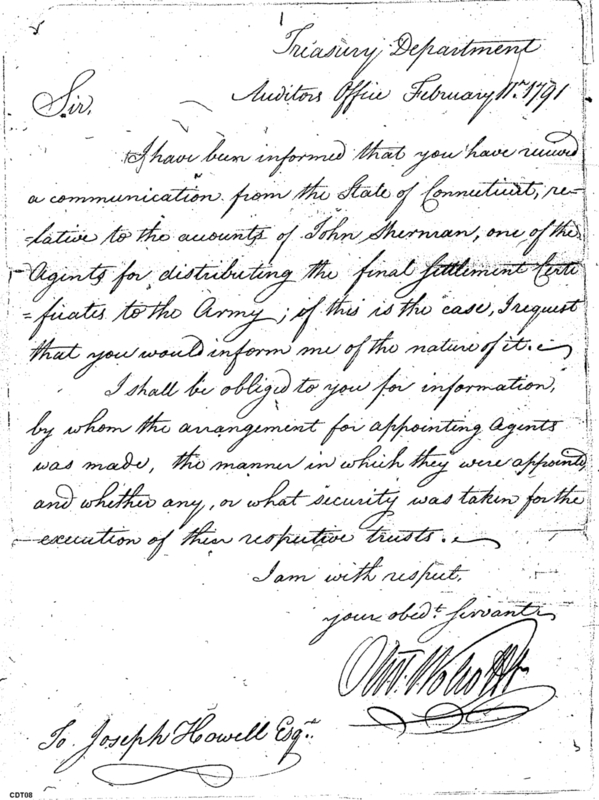 Treasury Department
Auditors Office February 11th 1791
Sir,
I have been informed that you have received
a communication from the State of Connecticut, re=
=lative to the accounts of John Sherman, one of the
Agents for distributing the final Settlement Certi
=ficates to the Army; if this is the case, I request
that you would inform me of the nature of it.
I shall be obliged to you for information,
by whom the arrangement for appointing Agents
was made, the manner in which they were appointed
and whether any, or what security was taken for the
execution of their respective trusts.
I am with respect.
your obedt Servant
Olivr. Wolcott Jr
To Joseph Howell Esqr.
CDT08